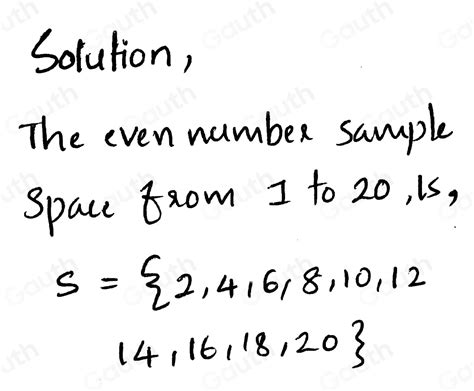 Solution,
The even number sample
Space from 1 to 20, is,
S = {2,4,6,8,10,12
14,16,18,20}